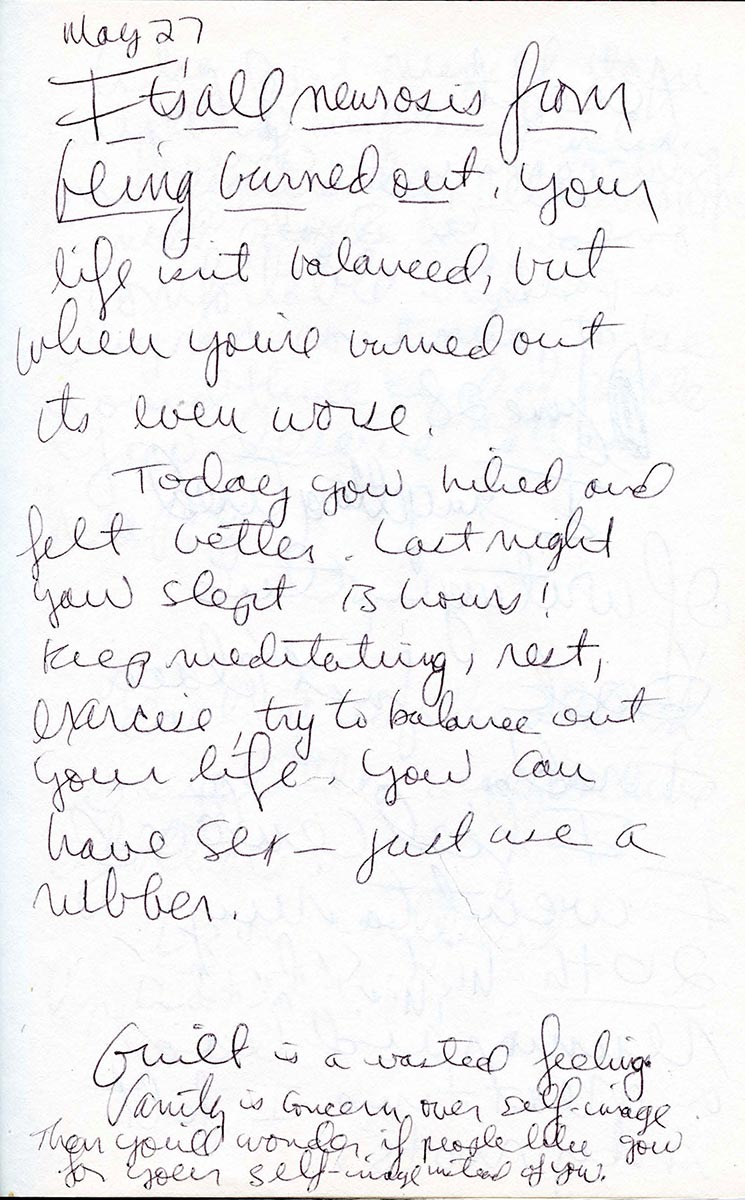 May 27
It's all neurosis from
being burned out. Your
life isn't balanced, but
when you're burned out
its even worse.
Today you hiked and
felt better. Last night
you slept 13 hours!
Keep meditating, rest,
exercise, try to balance out
your life. You can
have sex – just use a
rubber.
Guilt is a wasted feeling.
Vanity is concern over self-image
Then you'll wonder if people like you
for your self-image instead of you.